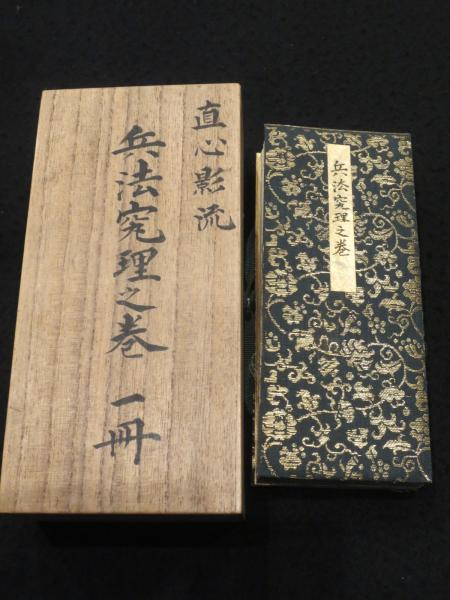 直心影流
兵法究理之巻
一冊
兵法究理之巻